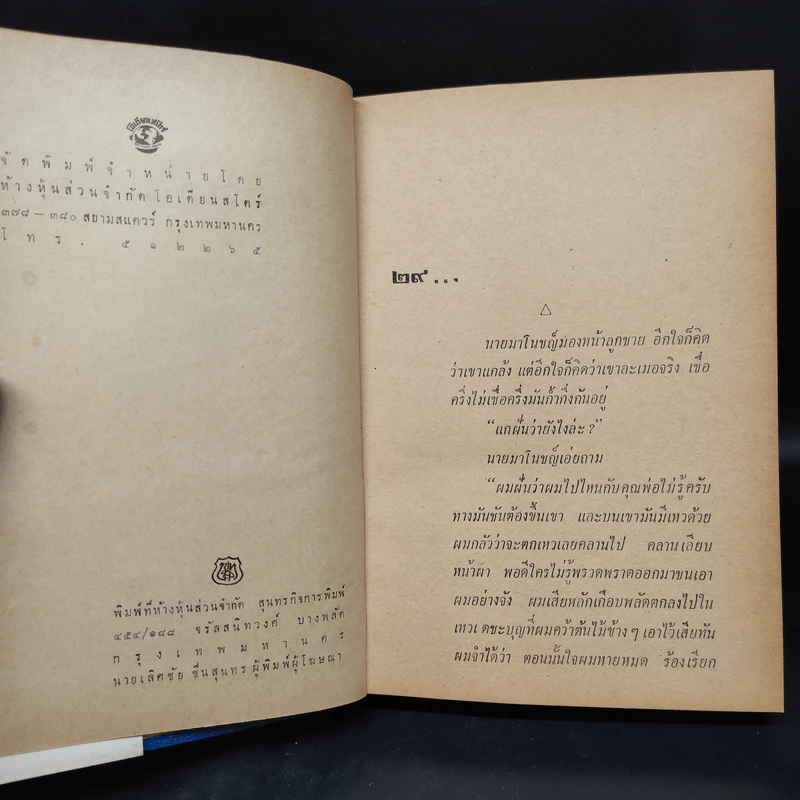 โอเดียนสโตร์
จัดพิมพ์จำหน่ายโดย
ห้างหุ้นส่วนจำกัด โอเดียนสโตร์
๓๗๘ — ๓๘๐ สยามสแควร์ กรุงเทพมหานคร
โทร. ๕๑๒๒๖๕
พิมพ์ที่ห้างหุ้นส่วนจำกัด สุนทรกิจการพิมพ์
๔๕๔/๑๘๘ จรัลสนิทวงศ์ บางพลัด
กรุงเทพมหานคร
นายเลิศชัย ชื่นสุนทร ผู้พิมพ์ผู้โฆษณา
๒๙...
นายมาโนชญ์มองหน้าลูกชาย อีกใจก็คิด
ว่าเขาแกล้ง แต่อีกใจก็คิดว่าเขาละเมอจริง เชื่อ
ครึ่งไม่เชื่อครึ่งมันก้ำกึ่งกันอยู่
“แกฝันว่ายังไงล่ะ ?”
นายมาโนชญ์เอ่ยถาม
“ผมฝันว่าผมไปไหนกับคุณพ่อไม่รู้ครับ
ทางมันชันต้องขึ้นเขา และบนเขามันมีเหวด้วย
ผมกลัวว่าจะตกเหวเลยคลานไป คลานเลียบ
หน้าผา พอดีใครไม่รู้พรวดพราดออกมาชนเอา
ผมอย่างจัง ผมเสียหลักเกือบพลัดตกลงไปใน
เหวเดชะบุญที่ผมคว้าต้นไม้ข้างๆ เอาไว้เสียทัน
ผมจำได้ว่า ตอนนั้นใจผมหายหมด ร้องเรียก